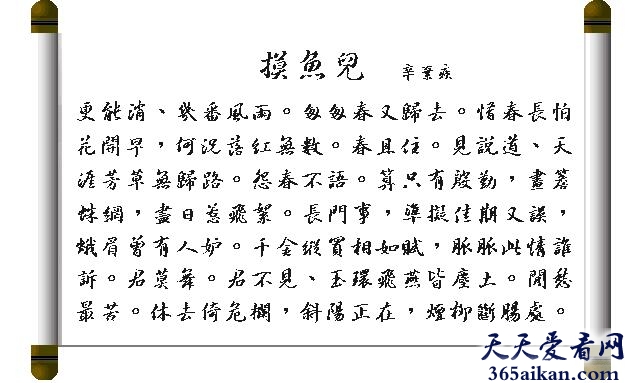 摸魚兒 辛棄疾
更能消、幾番風雨。匆匆春又歸去。惜春長怕
花開早，何況落紅無數。春且住。見說道、天
涯芳草無歸路。怨春不語。算只有殷勤，畫簷
蛛網，盡日惹飛絮。長門事，準擬佳期又誤，
蛾眉曾有人妒。千金縱買相如賦，脈脈此情誰
訴。君莫舞。君不見、玉環飛燕皆塵土。閒愁
最苦。休去倚危欄，斜陽正在，煙柳斷腸處。
天天爱看网
365aikan.com